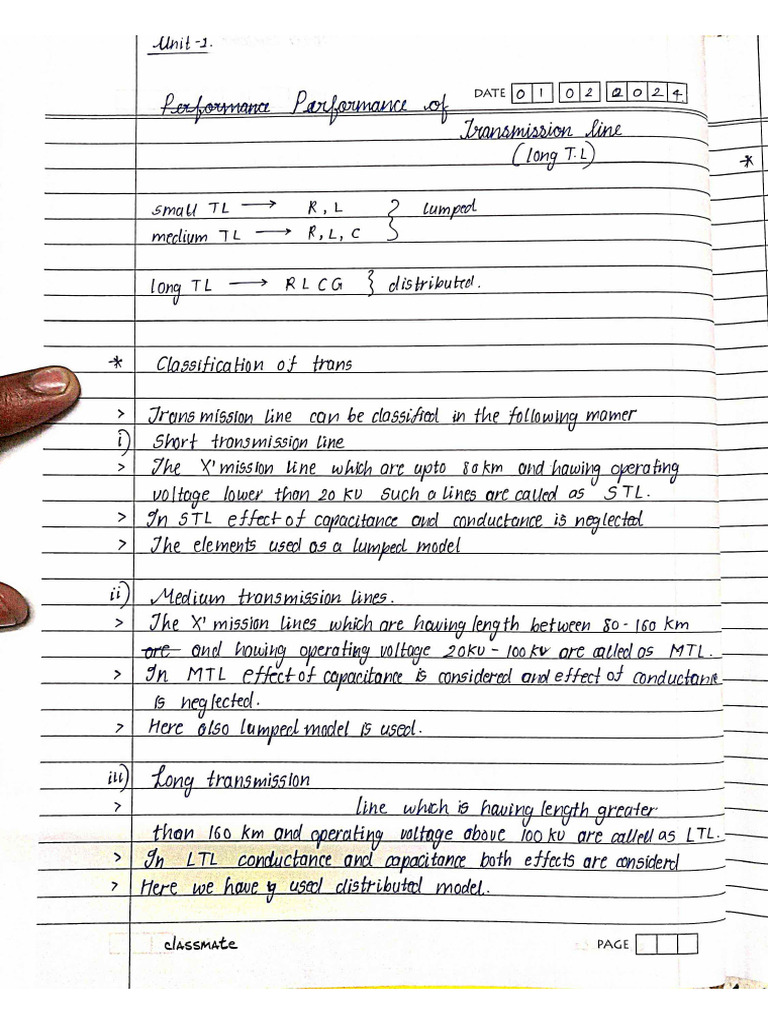 Unit-1.
DATE 01 02 2024
Performance Performance of
Transmission line
(long T.L)
*
small TL → R, L } lumped
medium TL → R, L, C
long TL → R L C G } distributed.
* Classification of trans
> Transmission line can be classified in the following manner
i) Short transmission line
> The X'mission line which are upto 80 km and hawing operating
voltage lower than 20 KV such a lines are called as STL.
> In STL effect of capacitance and conductance is neglected
> The elements used as a lumped model
ii) Medium transmission lines.
> The X' mission lines which are having length between 80-160 km
are and howing operating voltage 20KV - 100 kv are called as MTL.
> In MTL effect of capacitance is considered and effect of conductance
is neglected.
> Here also lumped model is used.
iii) Long transmission
> line which is having length greater
than 160 km and operating voltage above 100 kv are called as LTL.
> In LTL conductance and capacitance both effects are considerd
> Here we have used distributed model.
classmate
PAGE